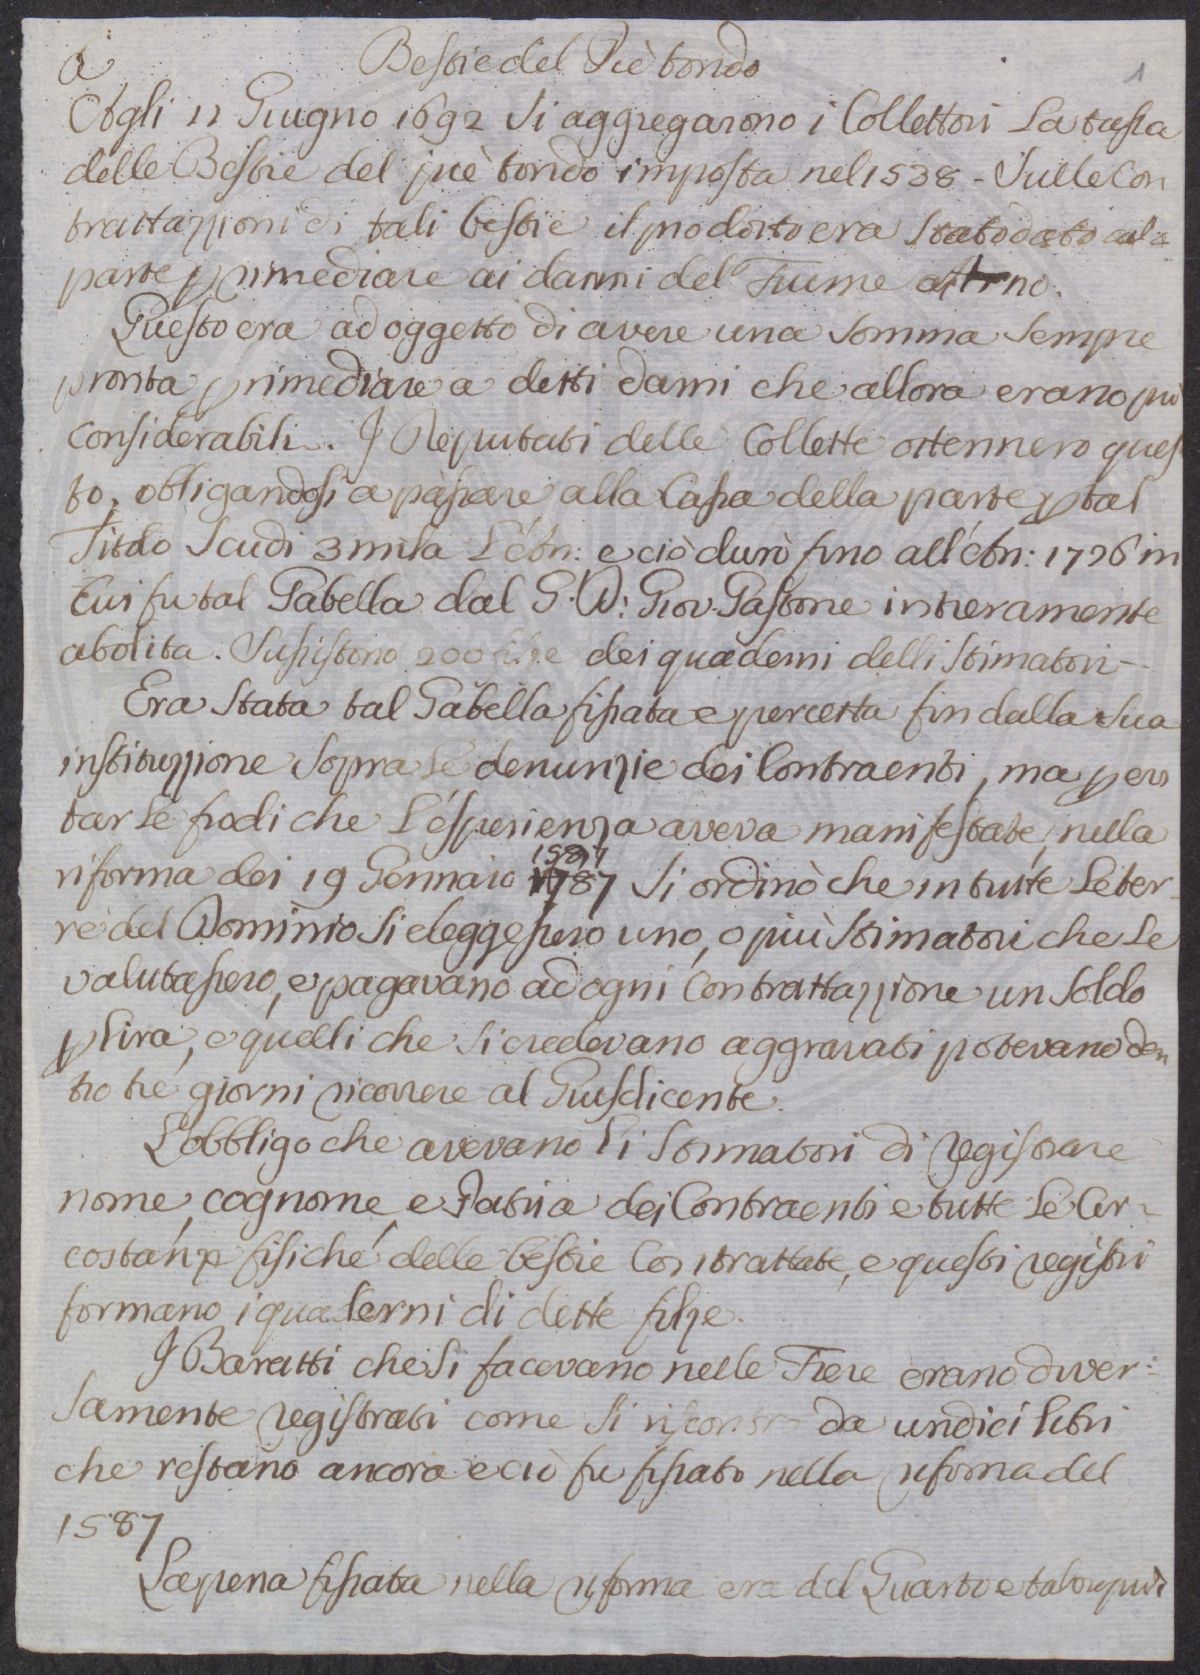 a Bestie del Piè tondo 1
Agli 11 Giugno 1692 si aggregarono i Collettori La tassa
delle Bestie del piè tondo imposta nel 1538 - Sulle Con
trattazzioni di tali bestie il prodotto era stato dato alla
parte p rimediare ai danni del Fiume Arno.
Questo era ad oggetto di avere una somma sempre
pronta p rimediare a detti danni che allora erano più
considerabili. I Deputati delle Collette ottennero ques
to, obligandosi a passare alla Cassa della parte p tal
Titolo Scudi 3 mila L'

 e ciò durò fino all' 1726 in
Cui fu tal Gabella dal G. D: Giov. Gastone intieramente
abolita. Sussistono 200 filze dei quaderni delli Stimatori -
Era stata tal Gabella fissata e percetta fin dalla sua
instituzzione sopra le denunzie dei Contraenti, ma p evi
tar le frodi che L'esperienza aveva manifestate, nella
riforma dei 19 Gennaio 1587 si ordinò che in tutte Le ter-
re del Dominio si eleggessero uno, o più Stimatori che Le
valutassero, e pagavano ad ogni Contrattazzione un Soldo
p Lira, e quelli che si credevano aggravati potevano den
tro tre giorni ricorrere al Giusdicente.
L'obbligo che avevano li Stimatori di registrare
nome, cognome e Patria dei Contraenti e tutte Le Cir=
costanze fisiche delle bestie Contrattate, e questi registri
formano i quaderni di dette filze.
I Baratti che si facevano nelle Fiere erano diver=
samente registrati come si riscontra da undici libri
che restano ancora e ciò fu fissato nella riforma del
1587
La pena fissata nella riforma era del Quarto e talor più